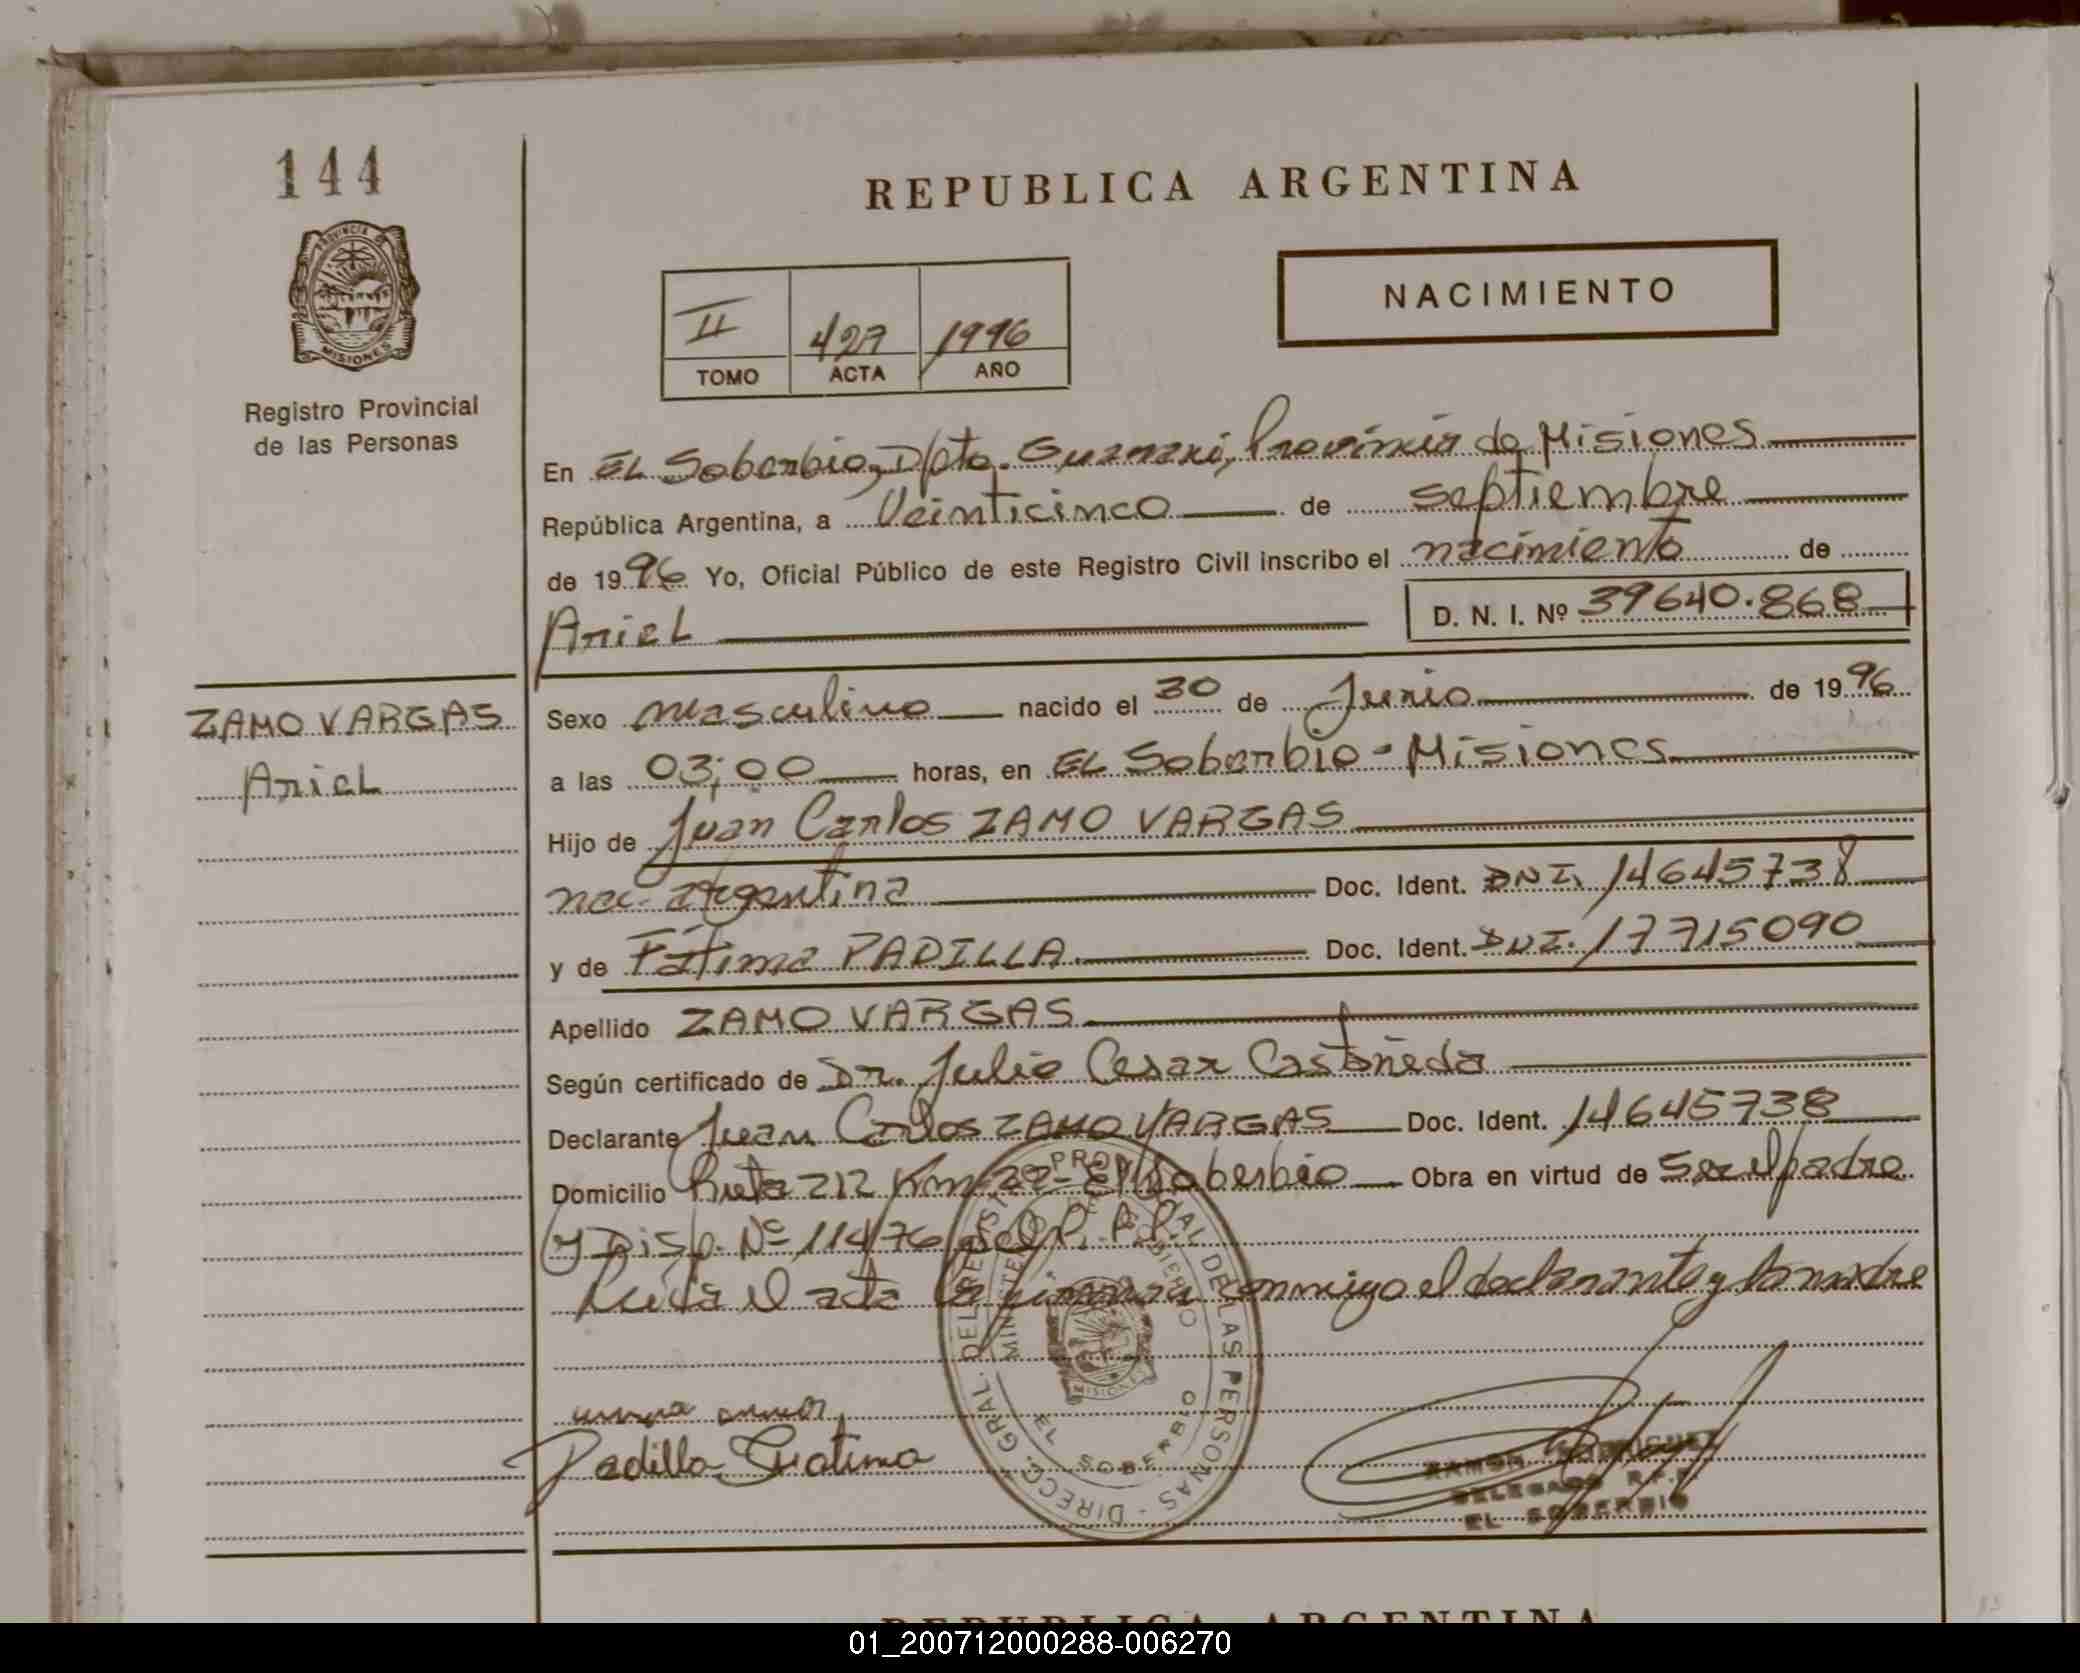 144
REPUBLICA ARGENTINA
PROVINCIA DE
MISIONES
NACIMIENTO
II 427 1996
TOMO ACTA AÑO
Registro Provincial
de las Personas
En EL Soberbio, Dpto. Guaraní, Provincia de Misiones
República Argentina, a Veinticinco de septiembre
de 1996 Yo, Oficial Público de este Registro Civil inscribo el nacimiento de
Ariel D. N. I. Nº 39640.868
ZAMO VARGAS
Ariel
Sexo masculino nacido el 30 de Junio de 1996
a las 03;00 horas, en EL Soberbio - Misiones
Hijo de Juan Carlos ZAMO VARGAS
nac. argentina Doc. Ident. DNI. 14645738
y de Fátima PADILLA Doc. Ident. DNI. 17715090
Apellido ZAMO VARGAS
Según certificado de Dr. Julio Cesar Castañeda
Declarante Juan Carlos ZAMO VARGAS Doc. Ident. 14645738
Domicilio Ruta 212 Km 22 - El Soberbio Obra en virtud de Ser el padre
y Disp. Nº 114/76 del R.P.P.
Leída el acta la firman conmigo el declarante y la madre
Padilla Fatima
DIRECC. GRAL. DEL REGISTRO PROVINCIAL DE LAS PERSONAS
EL SOBERBIO
MISIONES
RAMON RODRIGUEZ
DELEGADO R.P.P.
EL SOBERBIO
REPUBLICA ARGENTINA
01_200712000288-006270